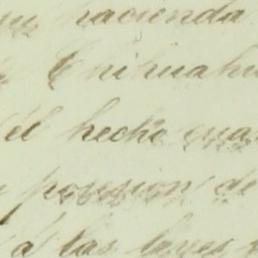 su hacienda
Chihuahu
él hecho cua
posesion de
á las leyes